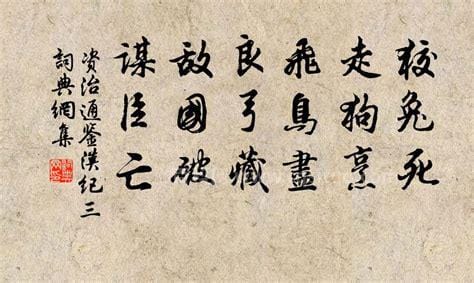 狡兔死
走狗烹
飛鳥盡
良弓藏
敌國破
謀臣亡
资治通鉴漢紀三
詞典網集